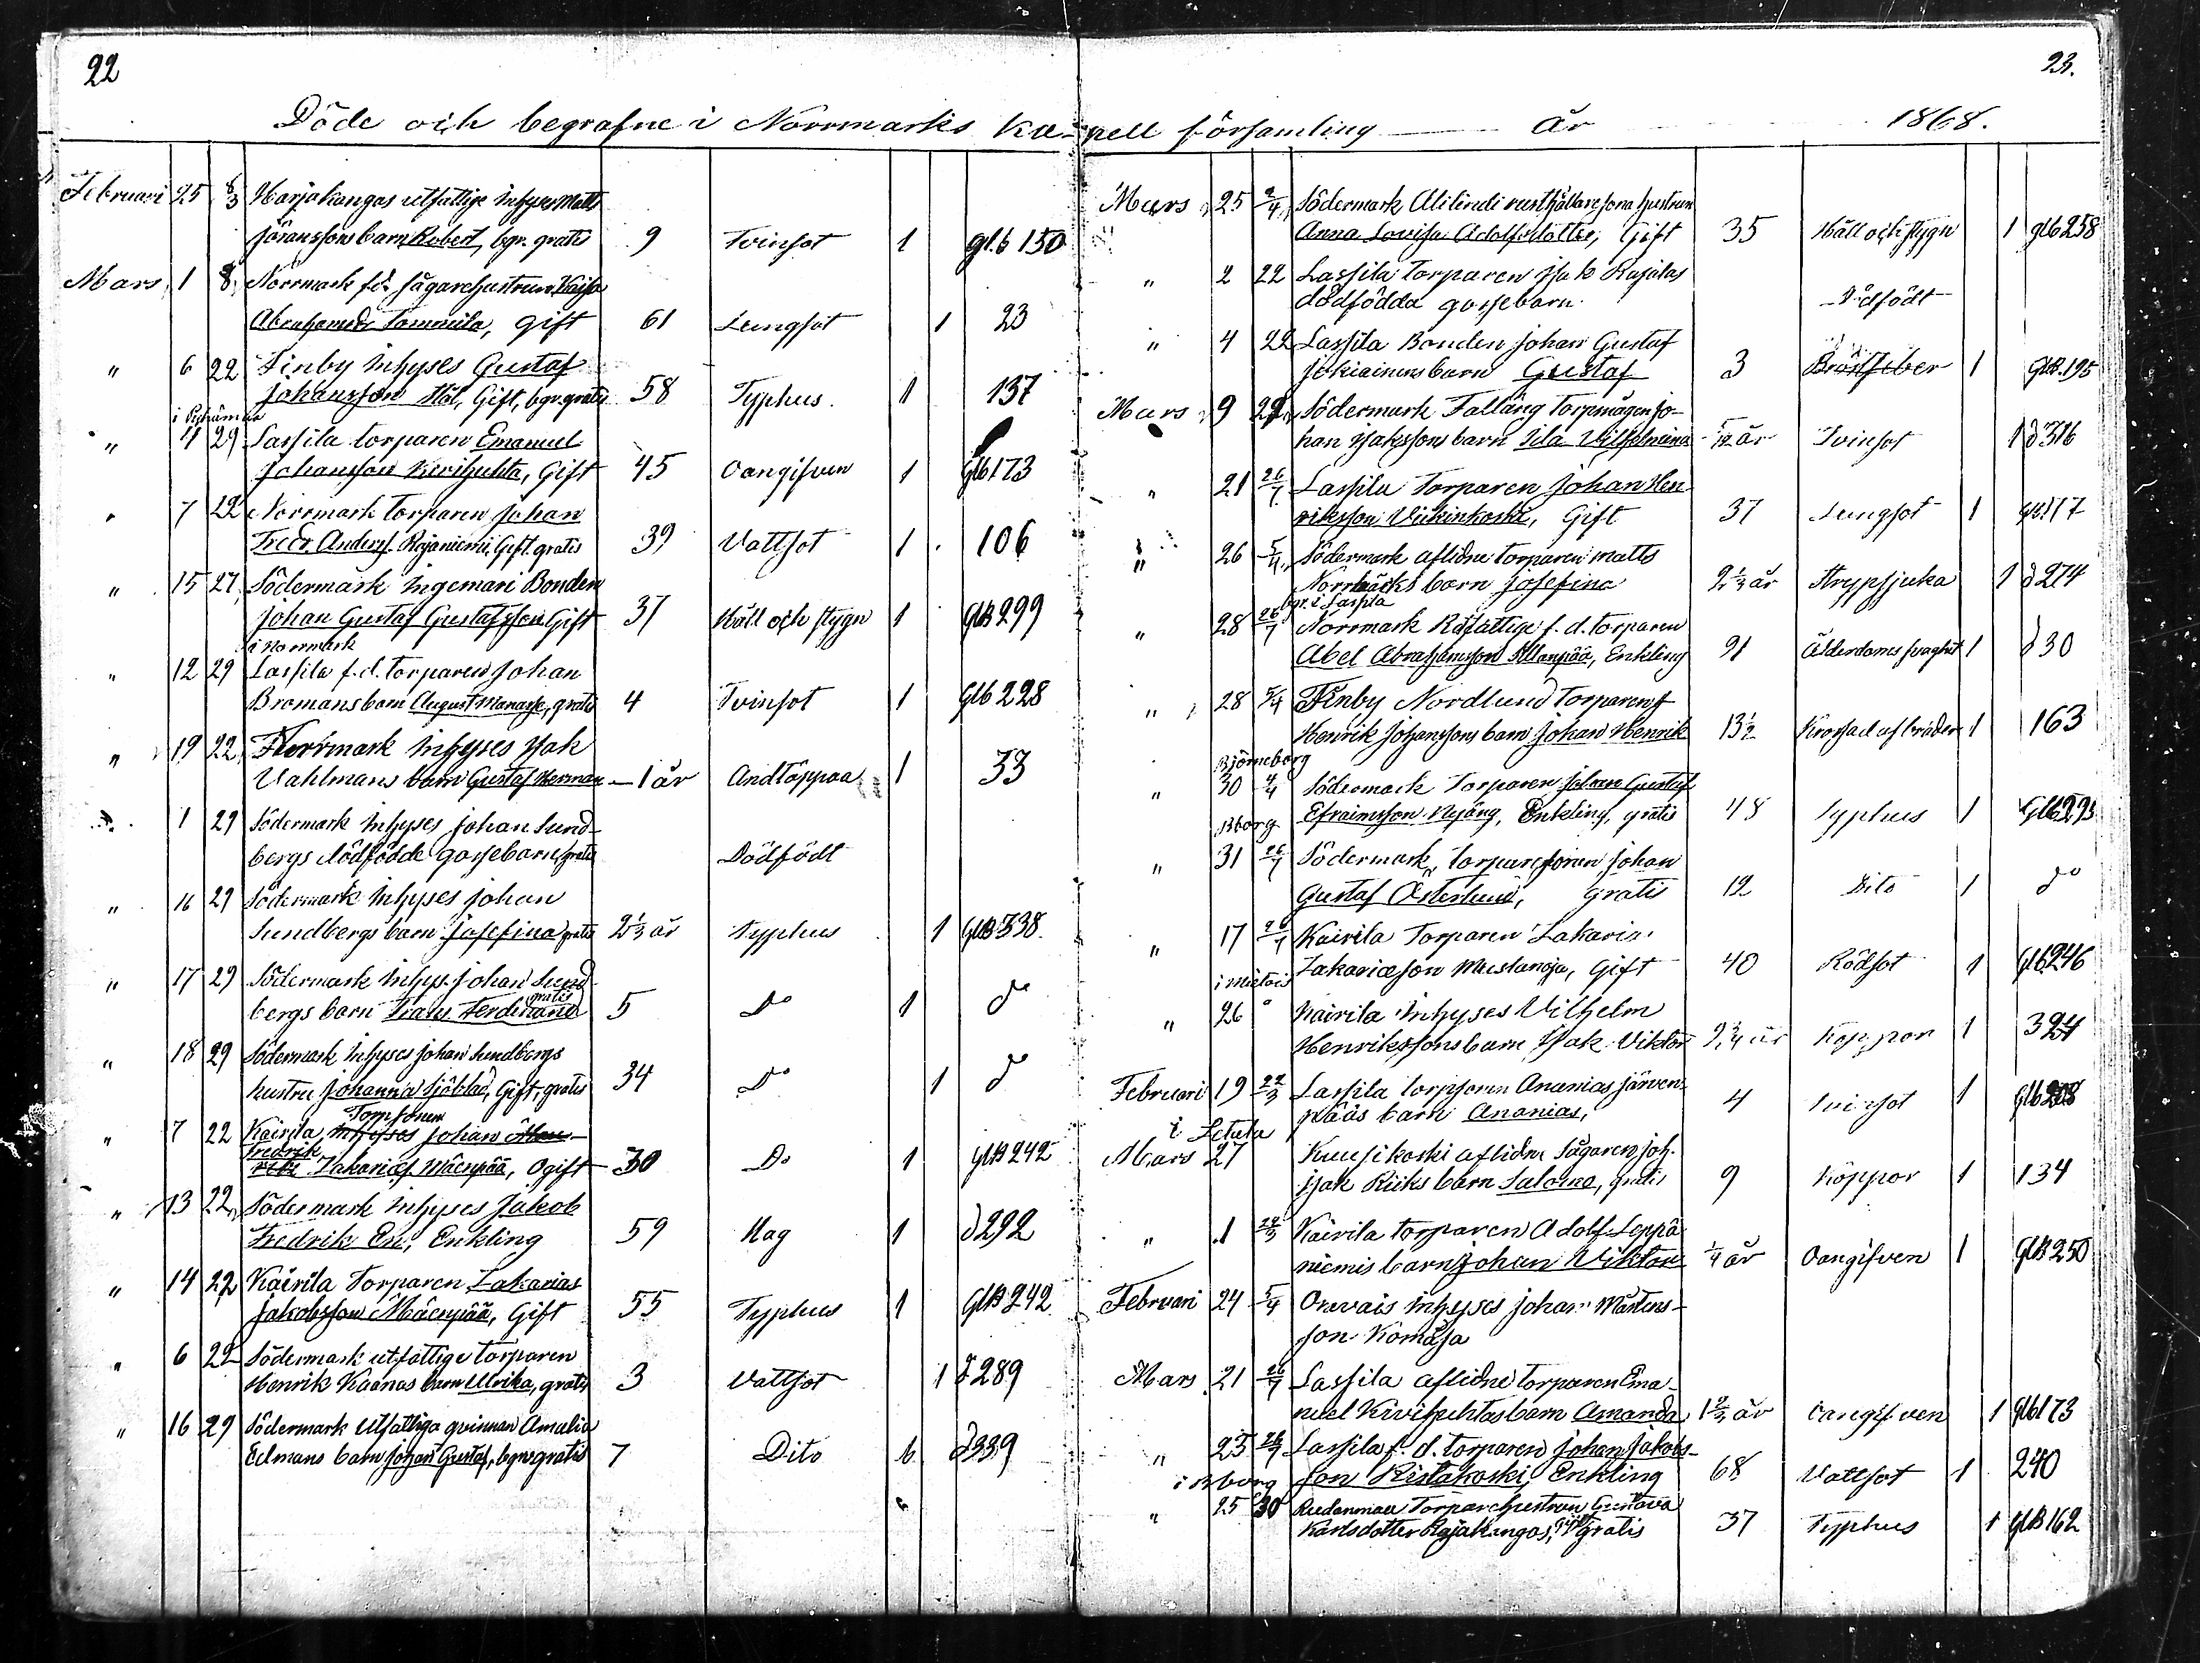 22
Döde och begrafne i Norrmarks Ka-
Februari 25 8/3 Harjakangas utfattige inhyses Matts
Jöranssons barn Robert, bgr. gratis 9 Tvinsot 1 gl.b 150
Mars 1 8 Norrmark f.d. sågarehustrun Kajsa
Abrahamsdr Tommila, gift 61 Lungsot 1 23
" 6 22 Finby inhyses Gustaf
Johansson Häl, Gift, bgr. gratis 58 Typhus. 1 137
" 11 29 Lassila torparen Emanuel
Johansson Kivihuhta, Gift 45 Oangifven 1 Glb 173
" 7 22 Norrmark torparen Johan
Fredr. Anders. Rajaniemi, Gift. gratis 39 Vattsot 1 106
" 15 27 Södermark Ingemari Bonden
Johan Gustaf Gustafsson Gift 37 Håll och stygn 1 GlB 299
i Norrmark
" 12 29 Lassila f.d. torparen Johan
Bromans barn August Manasse, gratis 4 Tvinsot 1 Glb 228
" 19 22 Norrmark inhyses Isak
Vahlmans barn Gustaf Herman — 1 år Andtäppa 1 33
1 29 Södermark inhyses Johan Sund-
bergs dödfödde gossebarn, gratis Dödfödt
" 16 29 Södermark inhyses Johan
Sundbergs barn Josefina gratis 2 1/3 år Typhus 1 GlB 338.
" 17 29 Södermark inhys. Johan Sund-
bergs barn Frans Ferdinand gratis 5 Do 1 do
" 18 29 Södermark inhyses Johan Sundbergs
hustru Johanna Sjöblad, Gift, gratis 34 Do 1 do
" 7 22 Kairila, inhyses Torpsonen Johan
Fredrik Zakariæs. Mäenpää, Ogift 30 Do 1 GlB 242
" 13 22 Södermark inhyses Jakob
Fredrik En, Enkling 59 Mag 1 d 292
" 14 22 Kairila Torparen Zakarias
Jakobsson Mäenpää, Gift 55 Typhus 1 GlB 242
" 6 22 Södermark utfattige torparen
Henrik Kaanas barn Ulrika, gratis 3 Vattsot 1 d 289
" 16 29 Södermark utfattiga qvinnan Amalia
Edmans barn Johan Gustaf, bgr. gratis 7 Dito 1 d 339
23.
pell församling år 1868.
Mars 25 Södermark Alilindi rusthållaresona hustrun
Anna Lovisa Adolfsdotter, Gift 35 Håll och stygn 1 glb 258
" 2 22 Lassila torparen Isak Rajalas
dödfödda gossebarn. Dödfödt
" 4 22 Lassila Bonden Johan Gustaf
Jokiainens barn Gustaf 3 Brännfeber 1 GlB. 195
Mars 9 Södermark Falläng Torpmågen Jo-
han Isakssons barn Ida Vilhelmina 5/12 år Tvinsot 1 d 316
" 21 26/4 Lassila Torparen Johan Hen-
riksson Viikinkoski, Gift 37 Lungsot 1
" 26 5/4 Södermark aflidne torparen Matts
Norrbäcks barn Josefina 2 1/3 år Strypsjuka 1 d 274
bgr. i Lassila
" 28 26/4 Norrmark Råfattige f.d. torparen
Abel Abrahamsson Allanpää, Enkling 91 Ålderdoms svaghet 1 d 30
" 28 5/4 Finby Nordlund Torparens
Henrik Johanssons barn Johan Henrik 13 1/2 Krossad af bräder 1 163
Björneborg
" 30 Södermark Torparen Johan Gustaf
Efraimsson Nyäng, Enkling, gratis 48 Typhus 1
Bborg
" 31 26/4 Södermark, torparesonen Johan
Gustaf Österlund, gratis 12 Dito 1 do
" 17 26/4 Kairila Torparen Zakaria
Zakariæson Mustanoja, Gift 40 Rödsot 1 glb 246
" 26 Kairila inhyses Vilhelm
Henrikssons barn Isak Viktor 2 3/4 år Koppor 1 324
Februari 19 22/3 Lassila torpsonen Ananias Järven-
pääs barn Ananias, 4 Tvinsot 1 Glb 208
Mars 27 Kuusikoski aflidne Sågaren Joh.
Isak Riiks barn Salome, gratis 9 Koppor 1 134
" 1 Kairila torparen Adolf Leppä-
niemis barn Johan Viktor 1/4 år Oangifven 1 GlB 250
Februari 24 5/4 Oravais inhyses Johan Mårtens-
son Komåsa
Mars 21 26/4 Lassila aflidne torparen Ema-
nuel Kivihuhtas barn Amanda 1 2/3 år Oangifven 1 Glb 173
" 23 26/4 Lassila f.d. torparen Johan Jakobs-
son Ristakoski, Enkling 68 Vattsot 1 240
i Bborg
" 25 30 Rudanmaa Torparehustrun Gustava
Karlsdotter Rajakangas, gift gratis 37 Typhus 1 GlB 162